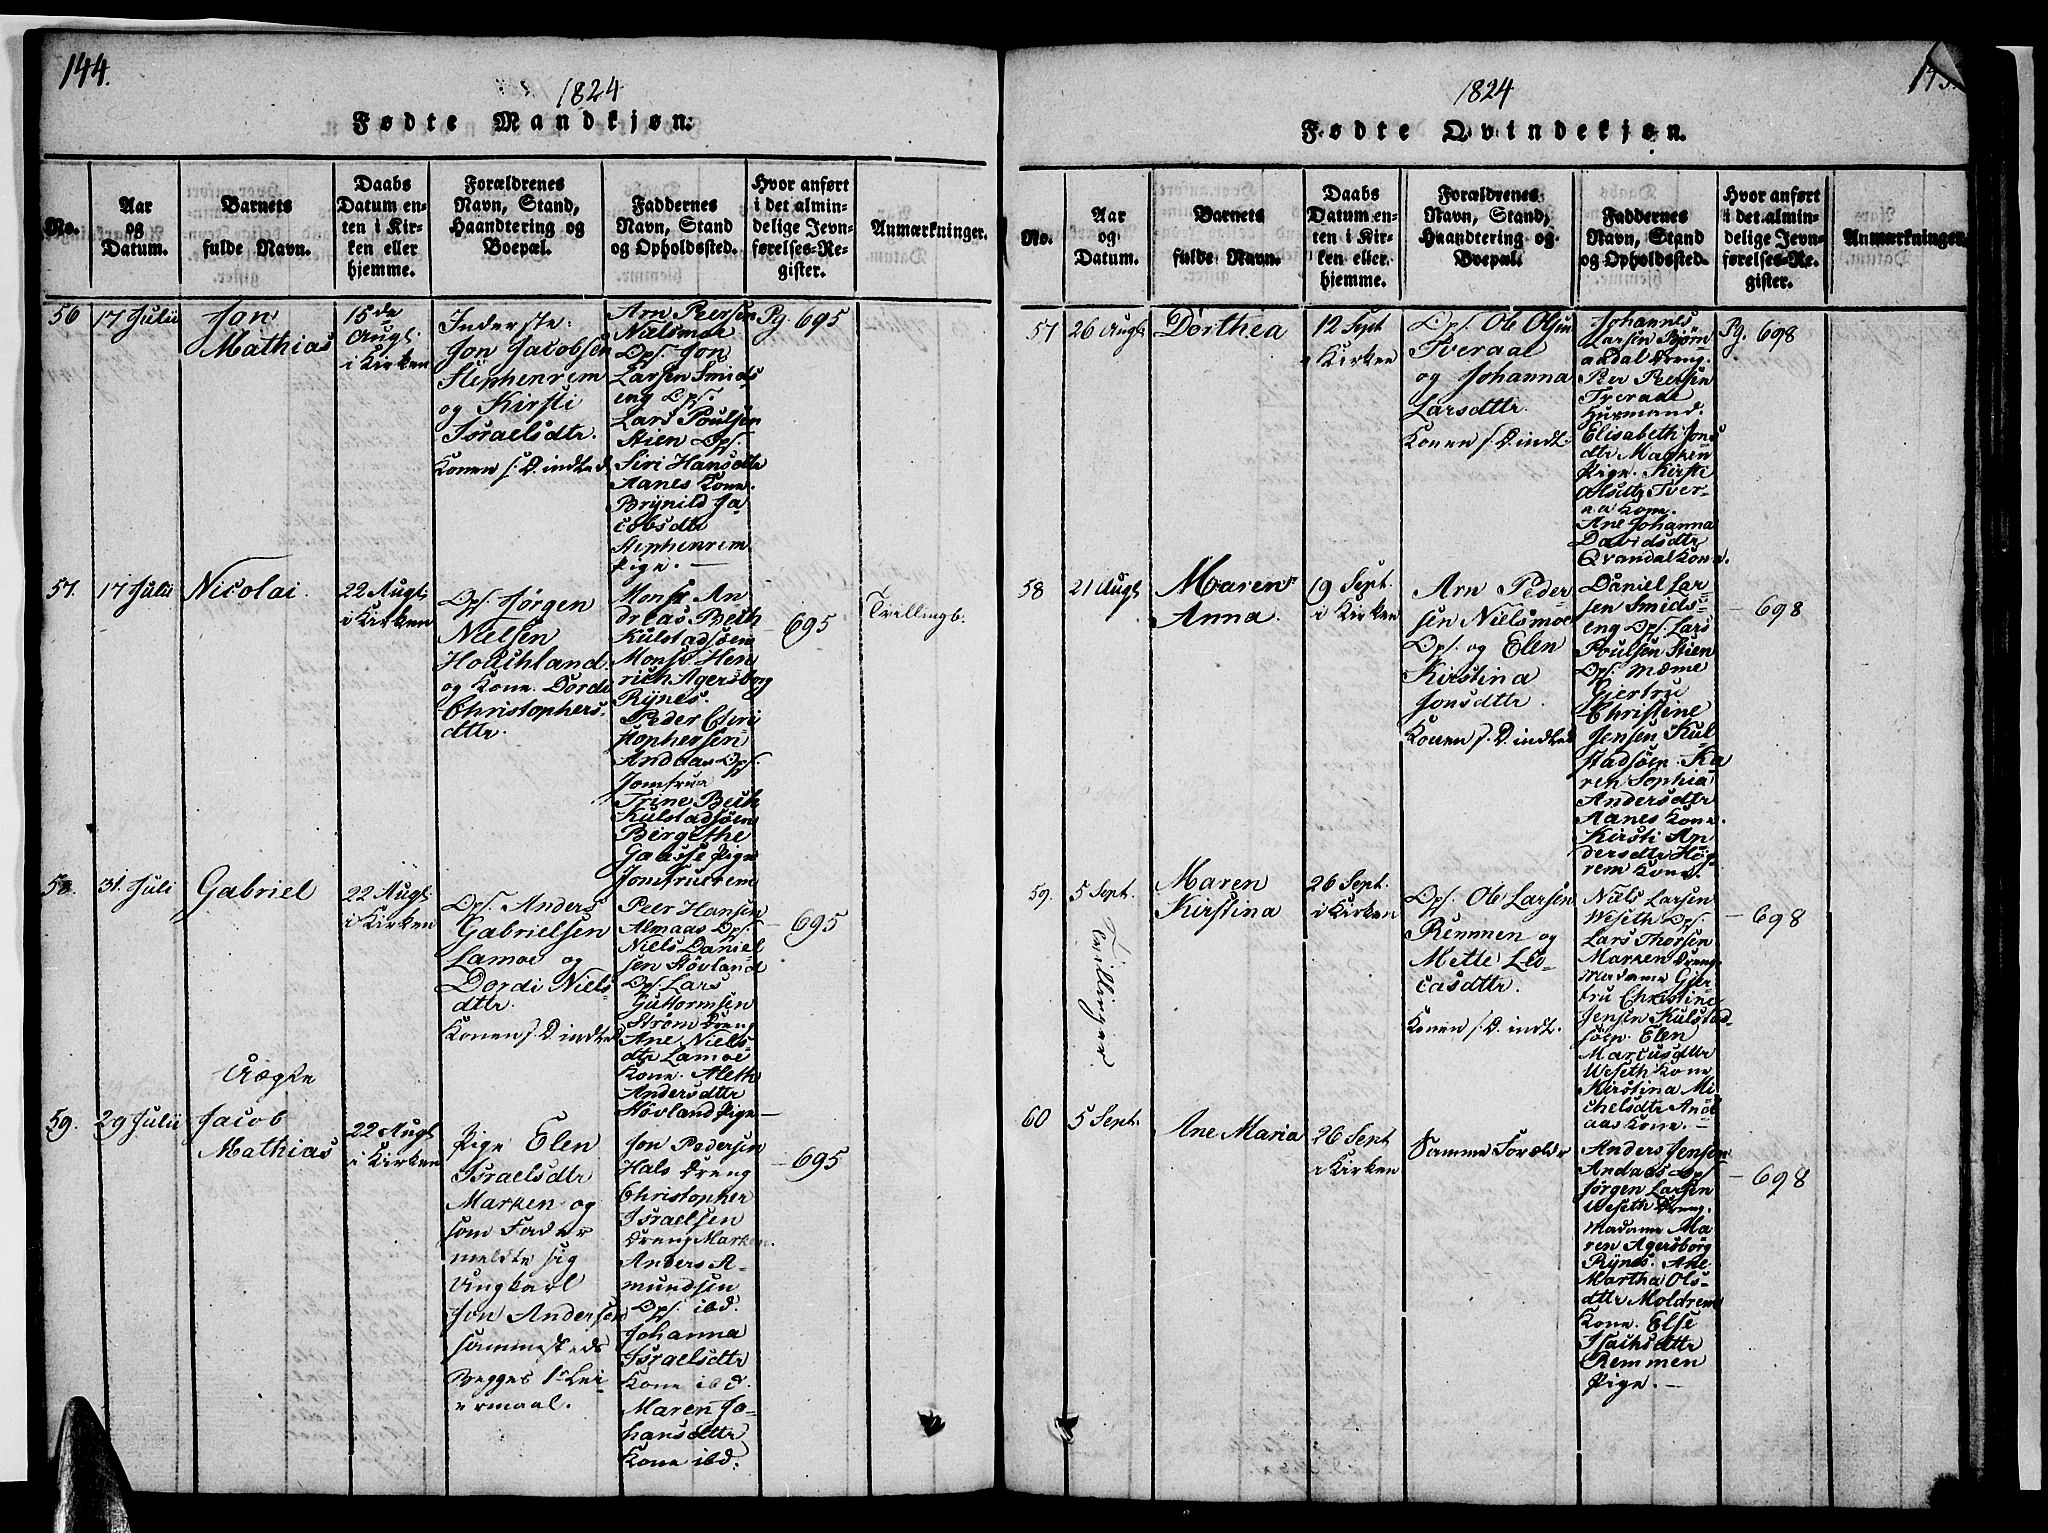 144.
1824
Fødte Mandkjøn:
No.
Aar
og
Datum.
Barnets
fulde Navn.
Daabs
Datum en-
ten i Kir-
ken eller
hjemme.
Forældrenes
Navn, Stand,
Haandtering og
Boepæl.
Faddernes
Navn, Stand
og Opholdssted.
Hvor anført
i det almin-
delige Jevn-
førelses-Re-
gister.
Anmærkninger.
56
17 Julii
Jon
Mathias
15de
Augl.
i Kirken
Inderste:
Jon Jacobsen
Stephenrem
og Kirsti
Israelsdtr.
Konen s. D. indted
Arn Peersen
Nielsmoe
Ops. Jon
Larsen Smids
eng Ops.
Lars Poulsen
Stien Ops.
Siri Hansdtr
Aanes Kone.
Brynild Ja
cobsdtr
Stephenrem
Pige. —
Pg. 695
57.
17 Julii
Nicolai.
22 Augl.
i Kirken
Ops. Jørgen
Nielsen
Houshland.
og Kone. Dordi
Christophers-
dttr.
Monsr An
dreas Bech
Kulstadsøen
Monsr Hen
rich Agersborg
Rynes.
Peder Chri
stophersen
Andaas Ops.
Jomfrue
Trine Bech
Kulstadsøen
Bergethe
Gaasse Pige
Jomfruerem
695
Tvillingb.
58.
31. Juli
Gabriel
22 Augl.
i Kirken
Ops. Anders
Gabrielsen
Lamoe og
Dordi Niels-
dttr.
Konen s. D. indted
Peer Hansen
Almaas Ops.
Niels Daniel
sen Høvland
Ops. Lars
Guttormsen
Strøm Dreng
Ane Niels-
dtr Lamoe
Kone. Aleth
Andersdttr
Høvland Pige —
— 695
Uægte
59.
29 Julii
Jacob
Mathias
22 Augl.
i Kirken
Pige Elen
Israelsdtr
Marken og
som Fader
meldte sig
Ungkarl
Jon Andersen
sammesteds
Begges 1ste Lei-
ermaal.
Jon Pedersen
Hals Dreng
Christopher
Israelsen
Dreng Marken.
Anders A-
mundsen
Ops. ibd.
Johanna
Israelsdtr
Kone ibd.
Maren Jo-
hansdttr
Kone ibd.
— 695
1824
Fødte Qvindekjøn.
No.
Aar
og
Datum.
Barnets
fulde Navn.
Daabs
Datum en-
ten i Kir-
ken eller
hjemme.
Forældrenes
Navn, Stand,
Haandtering og
Boepæl.
Faddernes
Navn, Stand
og Opholdssted.
Hvor anført
i det almin-
delige Jevn-
førelses-Re-
gister.
Anmærkninger.
57
26 Augl.
Dorthea
12 Sept
i Kirken
Ops. Ole Olsen
Tveraae
og Johanna
Larsdttr.
Konen s. D. indt.
Johannes
Larsen Bjørn
aadal Dreng.
Peer Peersen
Tveraae
Huusmand.
Elisabeth Jons
dtr Marken
Pige. Kirsti
Olsdtr Tver-
aa Kone.
Ane Johanna
Davidsdtr
Qvandal Kone.
Pg. 698
58
21 Augl.
Maren
Anna.
19 Sept.
i Kirken
Arn Peder-
sen Nielsmoe
Ops. og Elen
Kirstina
Jonsdttr.
Konen s. D. indted
Daniel Lar-
sen Smids-
eng Ops. Lars
Poulsen Stien
Ops. Mdme
Giertru
Christine
Jensen Kul
stadsøen. Ka
ren Sophia
Andersdttr
Aanes Kone.
Kirsti An
dersdtr Høg-
rem Kone.
— 698
59.
5 Sept.
Tvillinger
Maren
Kirstina
26 Sept.
i Kirken
Ops. Ole Larsen
Remmen og
Mette Lu-
casdttr.
Konen s. D. indt.
Niels Larsen
Weseth Ops.
Lars Thorsen
Marken Dreng.
Madame Gjer-
tru Christine
Jensen Kulstad-
søen. Elen
Marcusdttr
Weseth Kone
Kirstina Mi-
chelsdtr And
aas Kone. —
— 698
60
5 Sept.
Ane Maria
26 Sept
i Kirken
Samme Forældre
Anders Jensen
Andaas Ops.
Jørgen Larsen
Weseth Dreng.
Madame Ma
ren Agersborg
Rynes. Ane
Martha Ols-
dttr Moldrem
Kone. Else
Isachsdttr
Remmen
Pige. —
— 698